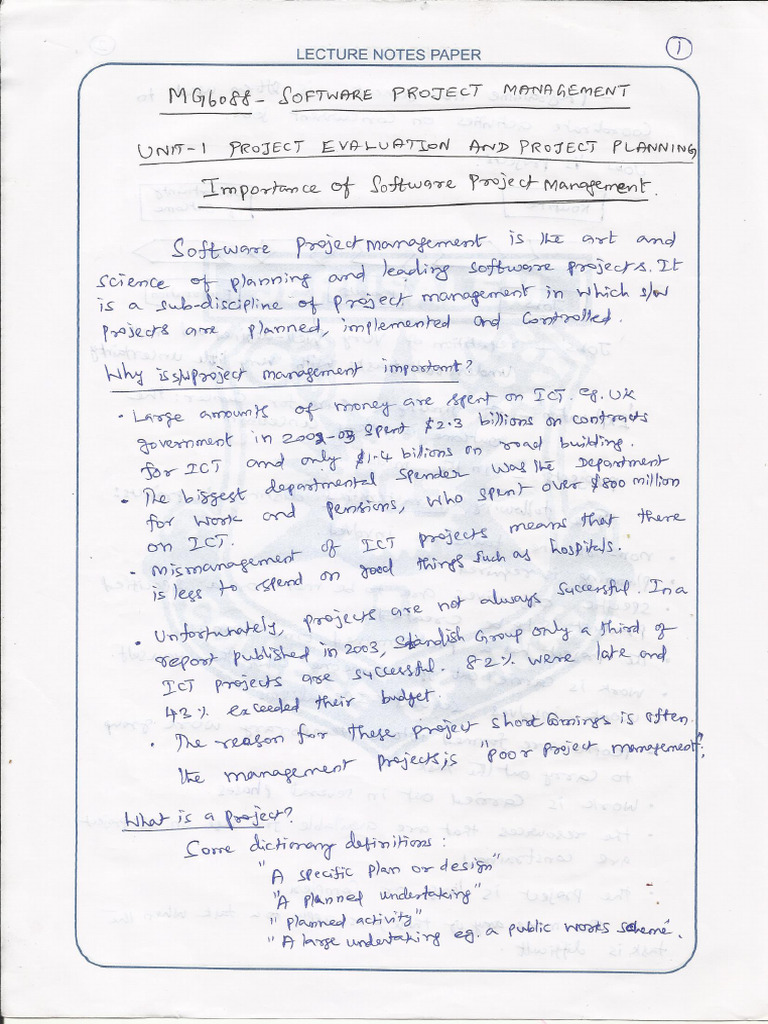 LECTURE NOTES PAPER
1
MG6088 - SOFTWARE PROJECT MANAGEMENT
UNIT-1 PROJECT EVALUATION AND PROJECT PLANNING
Importance of Software Project Management.
Software Project Management is the art and
science of planning and leading software projects. It
is a sub-discipline of project management in which s/w
projects are planned, implemented and controlled.
Why is s/w project management important?
• Large amounts of money are spent on ICT. eg. UK
government in 2002-03 spent $2.3 billions on contracts
for ICT and only $1.4 billions on road building.
• The biggest departmental spender was the Department
for work and pensions, who spent over $800 million
on ICT.
• Mismanagement of ICT projects means that there
is less to spend on good things such as hospitals.
• Unfortunately, projects are not always successful. In a
report published in 2003, Standish Group only a third of
ICT projects are successful. 82% were late and
43% exceeded their budget.
• The reason for these project short comings is often
the management projects, is "poor project management".
What is a project?
Some dictionary definitions:
"A specific plan or design"
"A planned undertaking"
"planned activity"
"A large undertaking eg. a public works scheme".